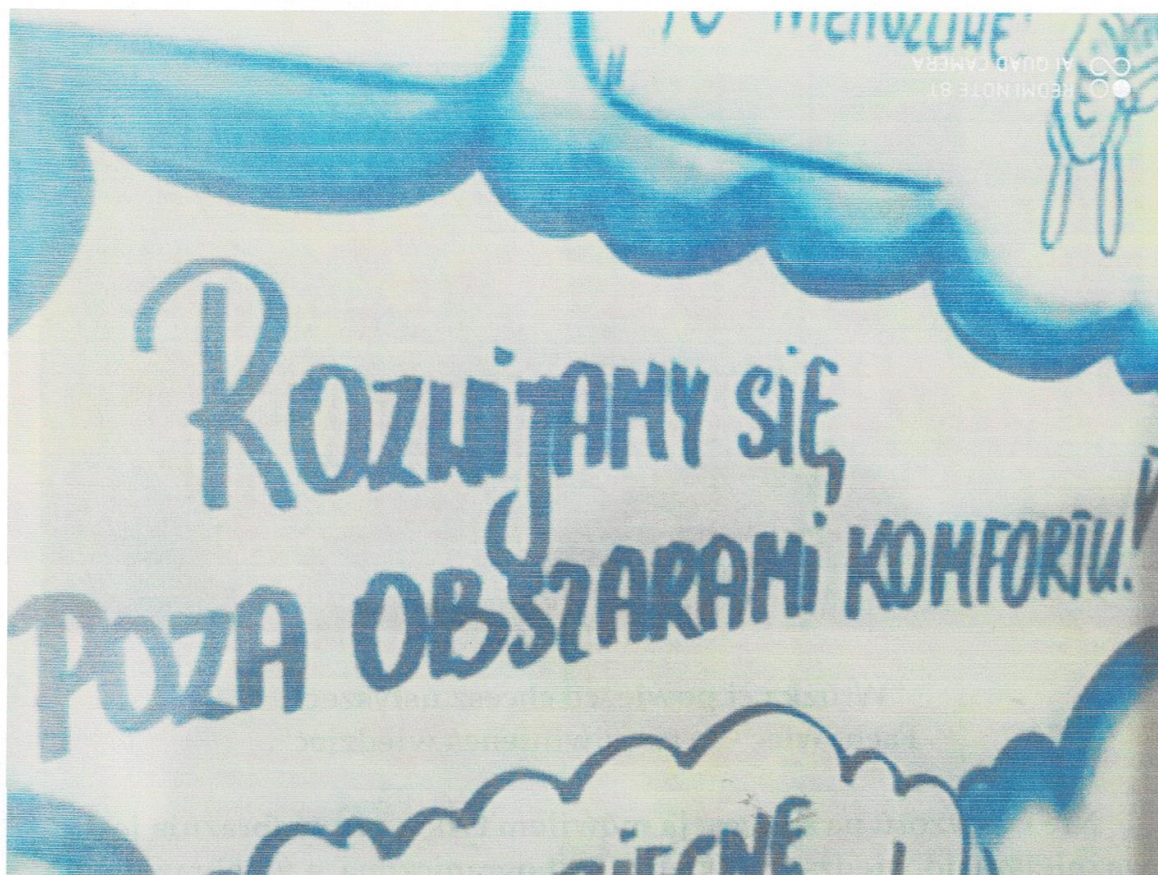 TO NIEMOŻLIWE!
REDMI NOTE 8T
AI QUAD CAMERA
Rozwijamy się
poza obszarami komfortu!